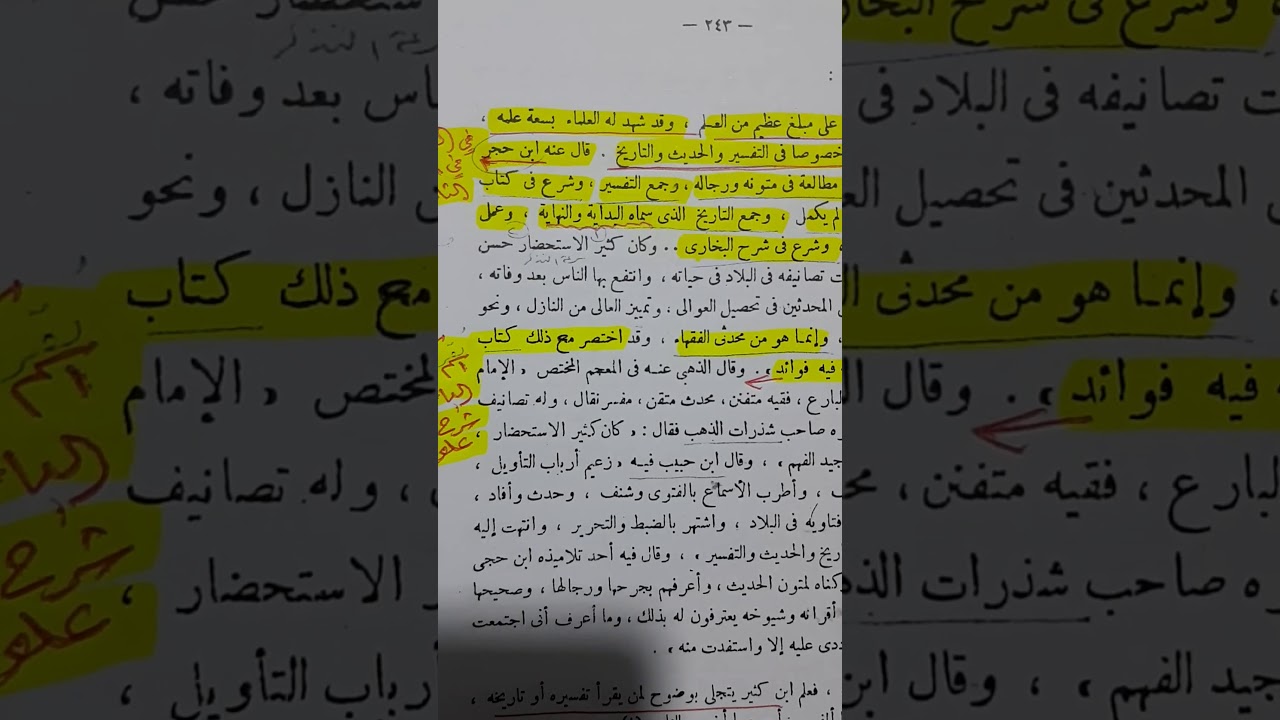 — ٢٤٣ —
:
على مبلغ عظيم من العلم ، وقد شهد له العلماء بسعة علمه ،
خصوصا فى التفسير والحديث والتاريخ . قال عنه ابن حجر
مطالعة فى متونه ورجاله ، وجمع التفسير ، وشرع فى كتاب
لم يكمل ، وجمع التاريخ الذى سماه البداية والنهاية ، وعمل
، وشرع فى شرح البخارى . . وكان كثير الاستحضار حسن
ت تصانيفه فى البلاد فى حياته ، وانتفع بها الناس بعد وفاته ،
المحدثين فى تحصيل العوالى ، وتمييز العالى من النازل ، ونحو
، وإنما هو من محدثى الفقهاء ، وقد اختصر مع ذلك كتاب
فيه فوائد » . وقال الذهبى عنه فى المعجم المختص « الإمام
البارع ، فقيه متفنن ، محدث متقن ، مفسر نقال ، وله تصانيف
ره صاحب شذرات الذهب فقال : « كان كثير الاستحضار ،
جيد الفهم » ، وقال ابن حبيب فيه « زعيم أرباب التأويل ،
ف ، وأطرب الأسماع بالفتوى وشنف ، وحدث وأفاد ،
فتاويه فى البلاد ، واشتهر بالضبط والتحرير ، وانتهت إليه
اريخ والحديث والتفسير » ، وقال فيه أحد تلاميذه ابن حجى
كناه لمتون الحديث ، وأعرفهم بجرحها ورجالها ، وصحيحها
أقرانه وشيوخه يعترفون له بذلك ، وما أعرف أنى اجتمعت
ددى عليه إلا واستفدت منه » .
، فعلم ابن كثير يتجلى بوضوح لمن يقرأ تفسيره أو تاريخه ،